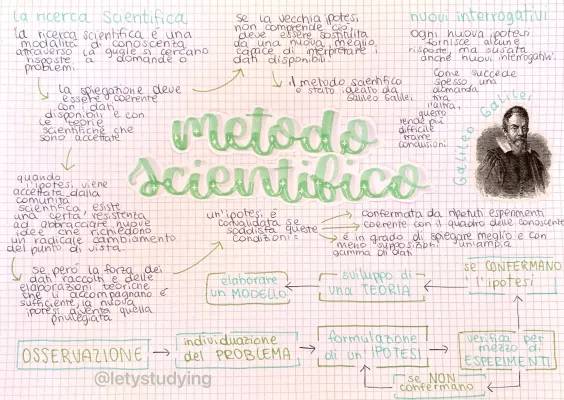 la ricerca scientifica
la ricerca scientifica è una
modalità di conoscenza
attraverso la quale si cercano
risposte a domande o
problemi.
la spiegazione deve
essere coerente
con i dati
disponibili e con
le teorie
scientifiche che
sono accettate
quando
l'ipotesi viene
accettata dalla
comunità
scientifica esiste
una certa resistenza
ad abbracciare nuove
idee che richiedono
un radicale cambiamento
del punto di vista.
se però la forza dei
dati raccolti e delle
elaborazioni teoriche
che li accompagnano è
sufficiente, la nuova
ipotesi diventa quella
privilegiata
se la vecchia ipotesi
non comprende ciò,
deve essere sostituita
da una nuova, meglio
capace di interpretare i
dati disponibili.
il metodo scientifico
è stato ideato da
Galileo Galilei
nuovi interrogativi
ogni nuova ipotesi
fornisce alcune
risposte, ma suscita
anche nuovi interrogativi.
Come succede
spesso una
domanda
tira
l'altra,
questo
rende più
difficile
trarre
conclusioni
Galileo Galilei
metodo
scientifico
un'ipotesi è
convalidata se
soddisfa queste
condizioni:
confermata da ripetuti esperimenti
coerente con il quadro delle conoscenze
è in grado di spiegare meglio e con
meno supposizioni un'ampia
gamma di dati
elaborare
un MODELLO
sviluppo di
una TEORIA
se CONFERMANO
l'ipotesi
OSSERVAZIONE
individuazione
del PROBLEMA
formulazione
di un' IPOTESI
verifica per
mezzo di
ESPERIMENTI
se NON
confermano
@letystudying